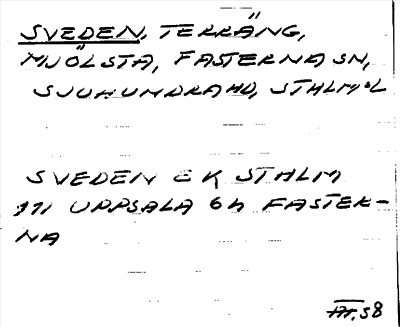 SVEDEN, TERRÄNG,
MJÖLSTA, FASTERNA SN,
SJUHUNDRA HD, STHLMS L
SVEDEN E K STHLM
111 UPPSALA 6h FASTER-
NA
III.38